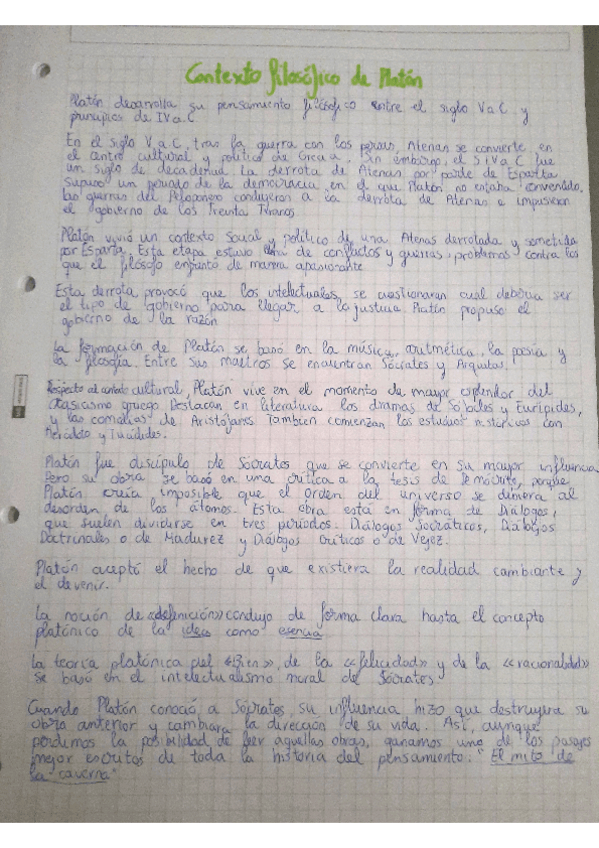 Contexto filosófico de Platón
Platón desarrolla su pensamiento filosófico entre el siglo V a C y
principios de IV a C.
En el siglo V a.C, tras la guerra con los persas, Atenas se convierte en
el centro cultural y político de Grecia. Sin embargo, el S IV a C fue
un siglo de decadencia. La derrota de Atenas por parte de Esparta
supuso un periodo de la democracia, en el que Platón no estaba convencido.
Las guerras del Peloponeso condujeron a la derrota de Atenas e impusieron
el gobierno de los Treinta Tiranos.
Platón vivió un contexto social y político de una Atenas derrotada y sometida
por Esparta. Esta etapa estuvo llena de conflictos y guerras, problemas contra los
que el filósofo enfrentó de manera apasionante
Esta derrota provocó que los intelectuales se cuestionaran cual debería ser
el tipo de gobierno para llegar a la justicia. Platón propuso el
gobierno de la razón
La formación de Platón se basó en la música, aritmética, la poesía y
la filosofía. Entre sus maestros se encuentran Sócrates y Arquitas.
Respecto al contexto cultural, Platón vive en el momento de mayor esplendor del
clasicismo griego Destacan en literatura los dramas de Sófocles y Eurípides,
y las comedias de Aristófanes También comienzan los estudios históricos con
Heródoto y Tucídides.
Platón fue discípulo de Sócrates que se convierte en su mayor influencia
Pero su obra se basó en una crítica a la tesis de Demócrito, porque
Platón creía imposible que el orden del universo se debiera al
desorden de los átomos. Esta obra está en forma de Diálogos,
que suelen dividirse en tres periodos. Diálogos Socráticos, Diálogos
Doctrinales o de Madurez y Diálogos Críticos o de Vejez.
Platón aceptó el hecho de que existiera la realidad cambiante y
el devenir.
La noción de «definición» condujo de forma clara hasta el concepto
platónico de la idea como esencia
La teoría platónica del «Bien», de la «felicidad» y de la «racionalidad»
se basó en el intelectualismo moral de Sócrates
Cuando Platón conoció a Sócrates su influencia hizo que destruyera su
obra anterior y cambiara la dirección de su vida. Así, aunque
perdimos la posibilidad de leer aquellas obras, ganamos uno de los pasajes
mejor escritos de toda la historia del pensamiento: "El mito de
la caverna"